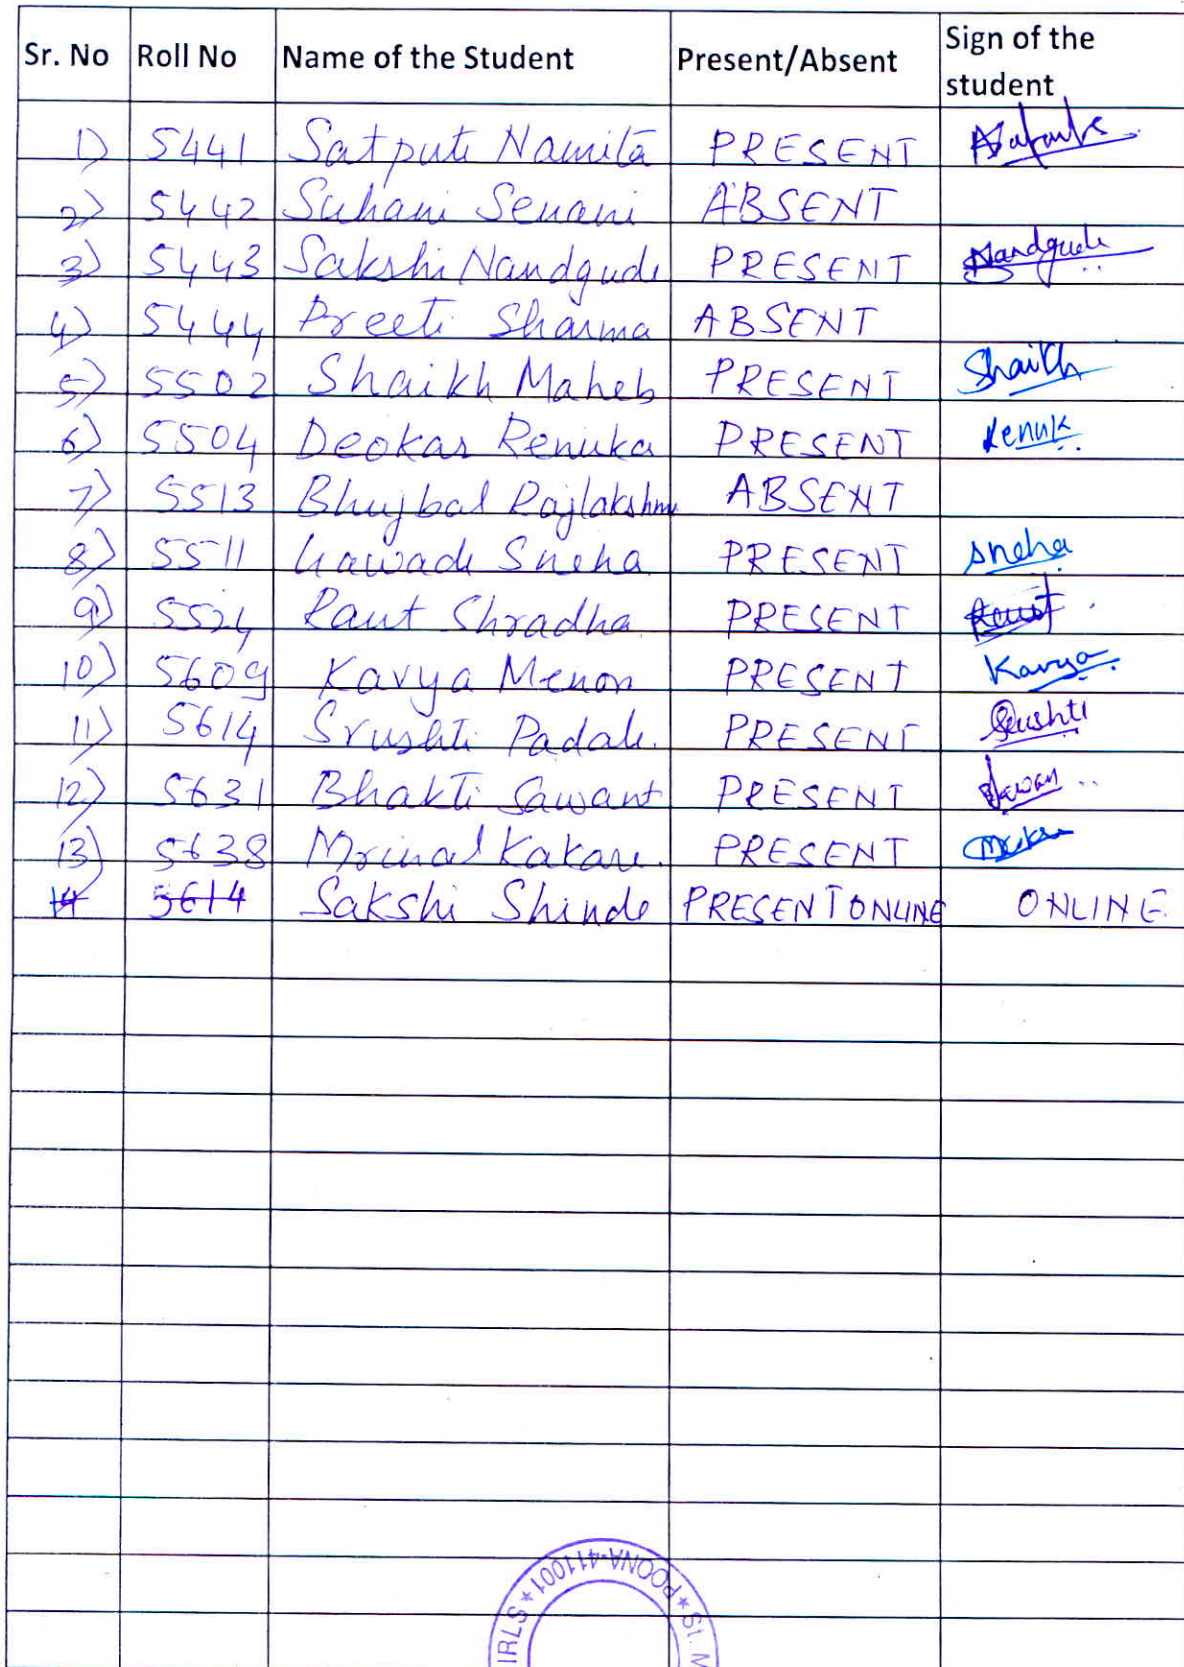 Sr. No Roll No Name of the Student Present/Absent Sign of the student
1) 5441 Satpute Namita PRESENT
2) 5442 Suhani Senani ABSENT
3) 5443 Sakshi Nandgude PRESENT Nandgude
4) 5444 Preeti Sharma ABSENT
5) 5502 Shaikh Maheb PRESENT Shaikh
6) 5504 Deokar Renuka PRESENT Renuk
7) 5513 Bhujbal Rajlakshmi ABSENT
8) 5511 Gawade Sneha PRESENT Sneha
9) 5524 Raut Shradha PRESENT Raut
10) 5609 Kavya Menon PRESENT Kavya
11) 5614 Srushti Padale. PRESENT Srushti
12) 5631 Bhakti Sawant PRESENT
13) 5638 Mrinal Kakare. PRESENT
14 5614 Sakshi Shinde PRESENT ONLINE ONLINE
IRLS * POONA-411001 * St. M